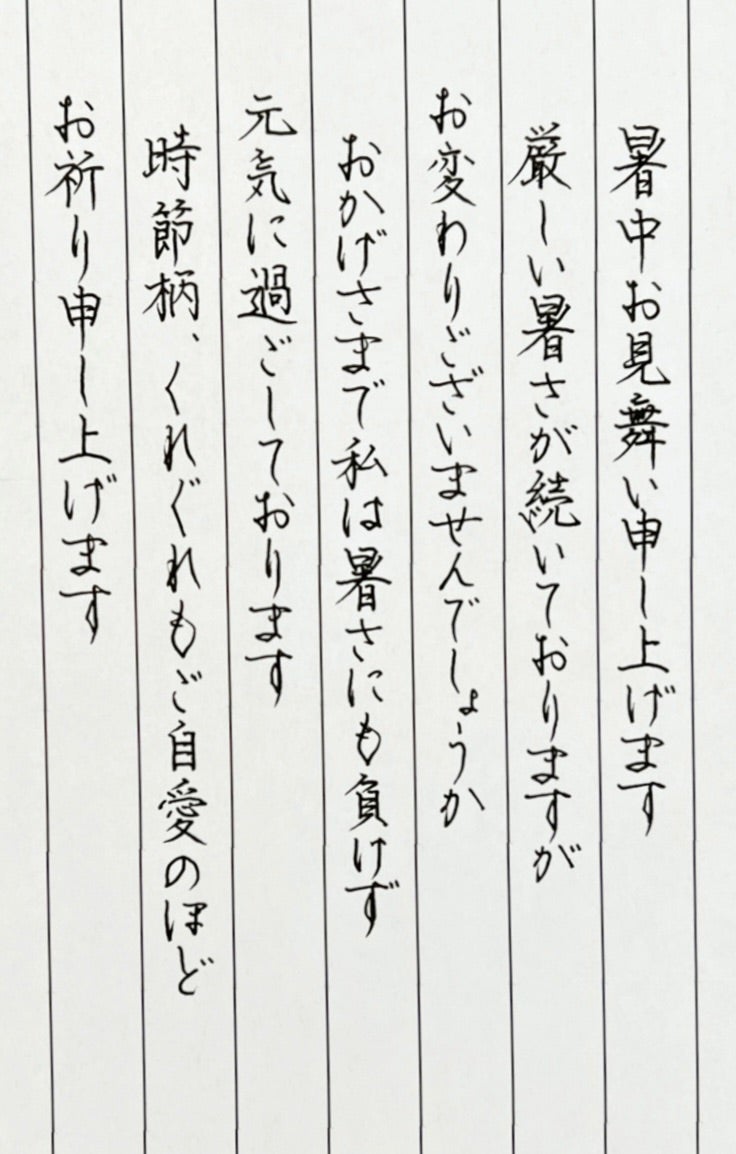 暑中お見舞い申し上げます
厳しい暑さが続いておりますが
お変わりございませんでしょうか
おかげさまで私は暑さにも負けず
元気に過ごしております
時節柄、くれぐれもご自愛のほど
お祈り申し上げます